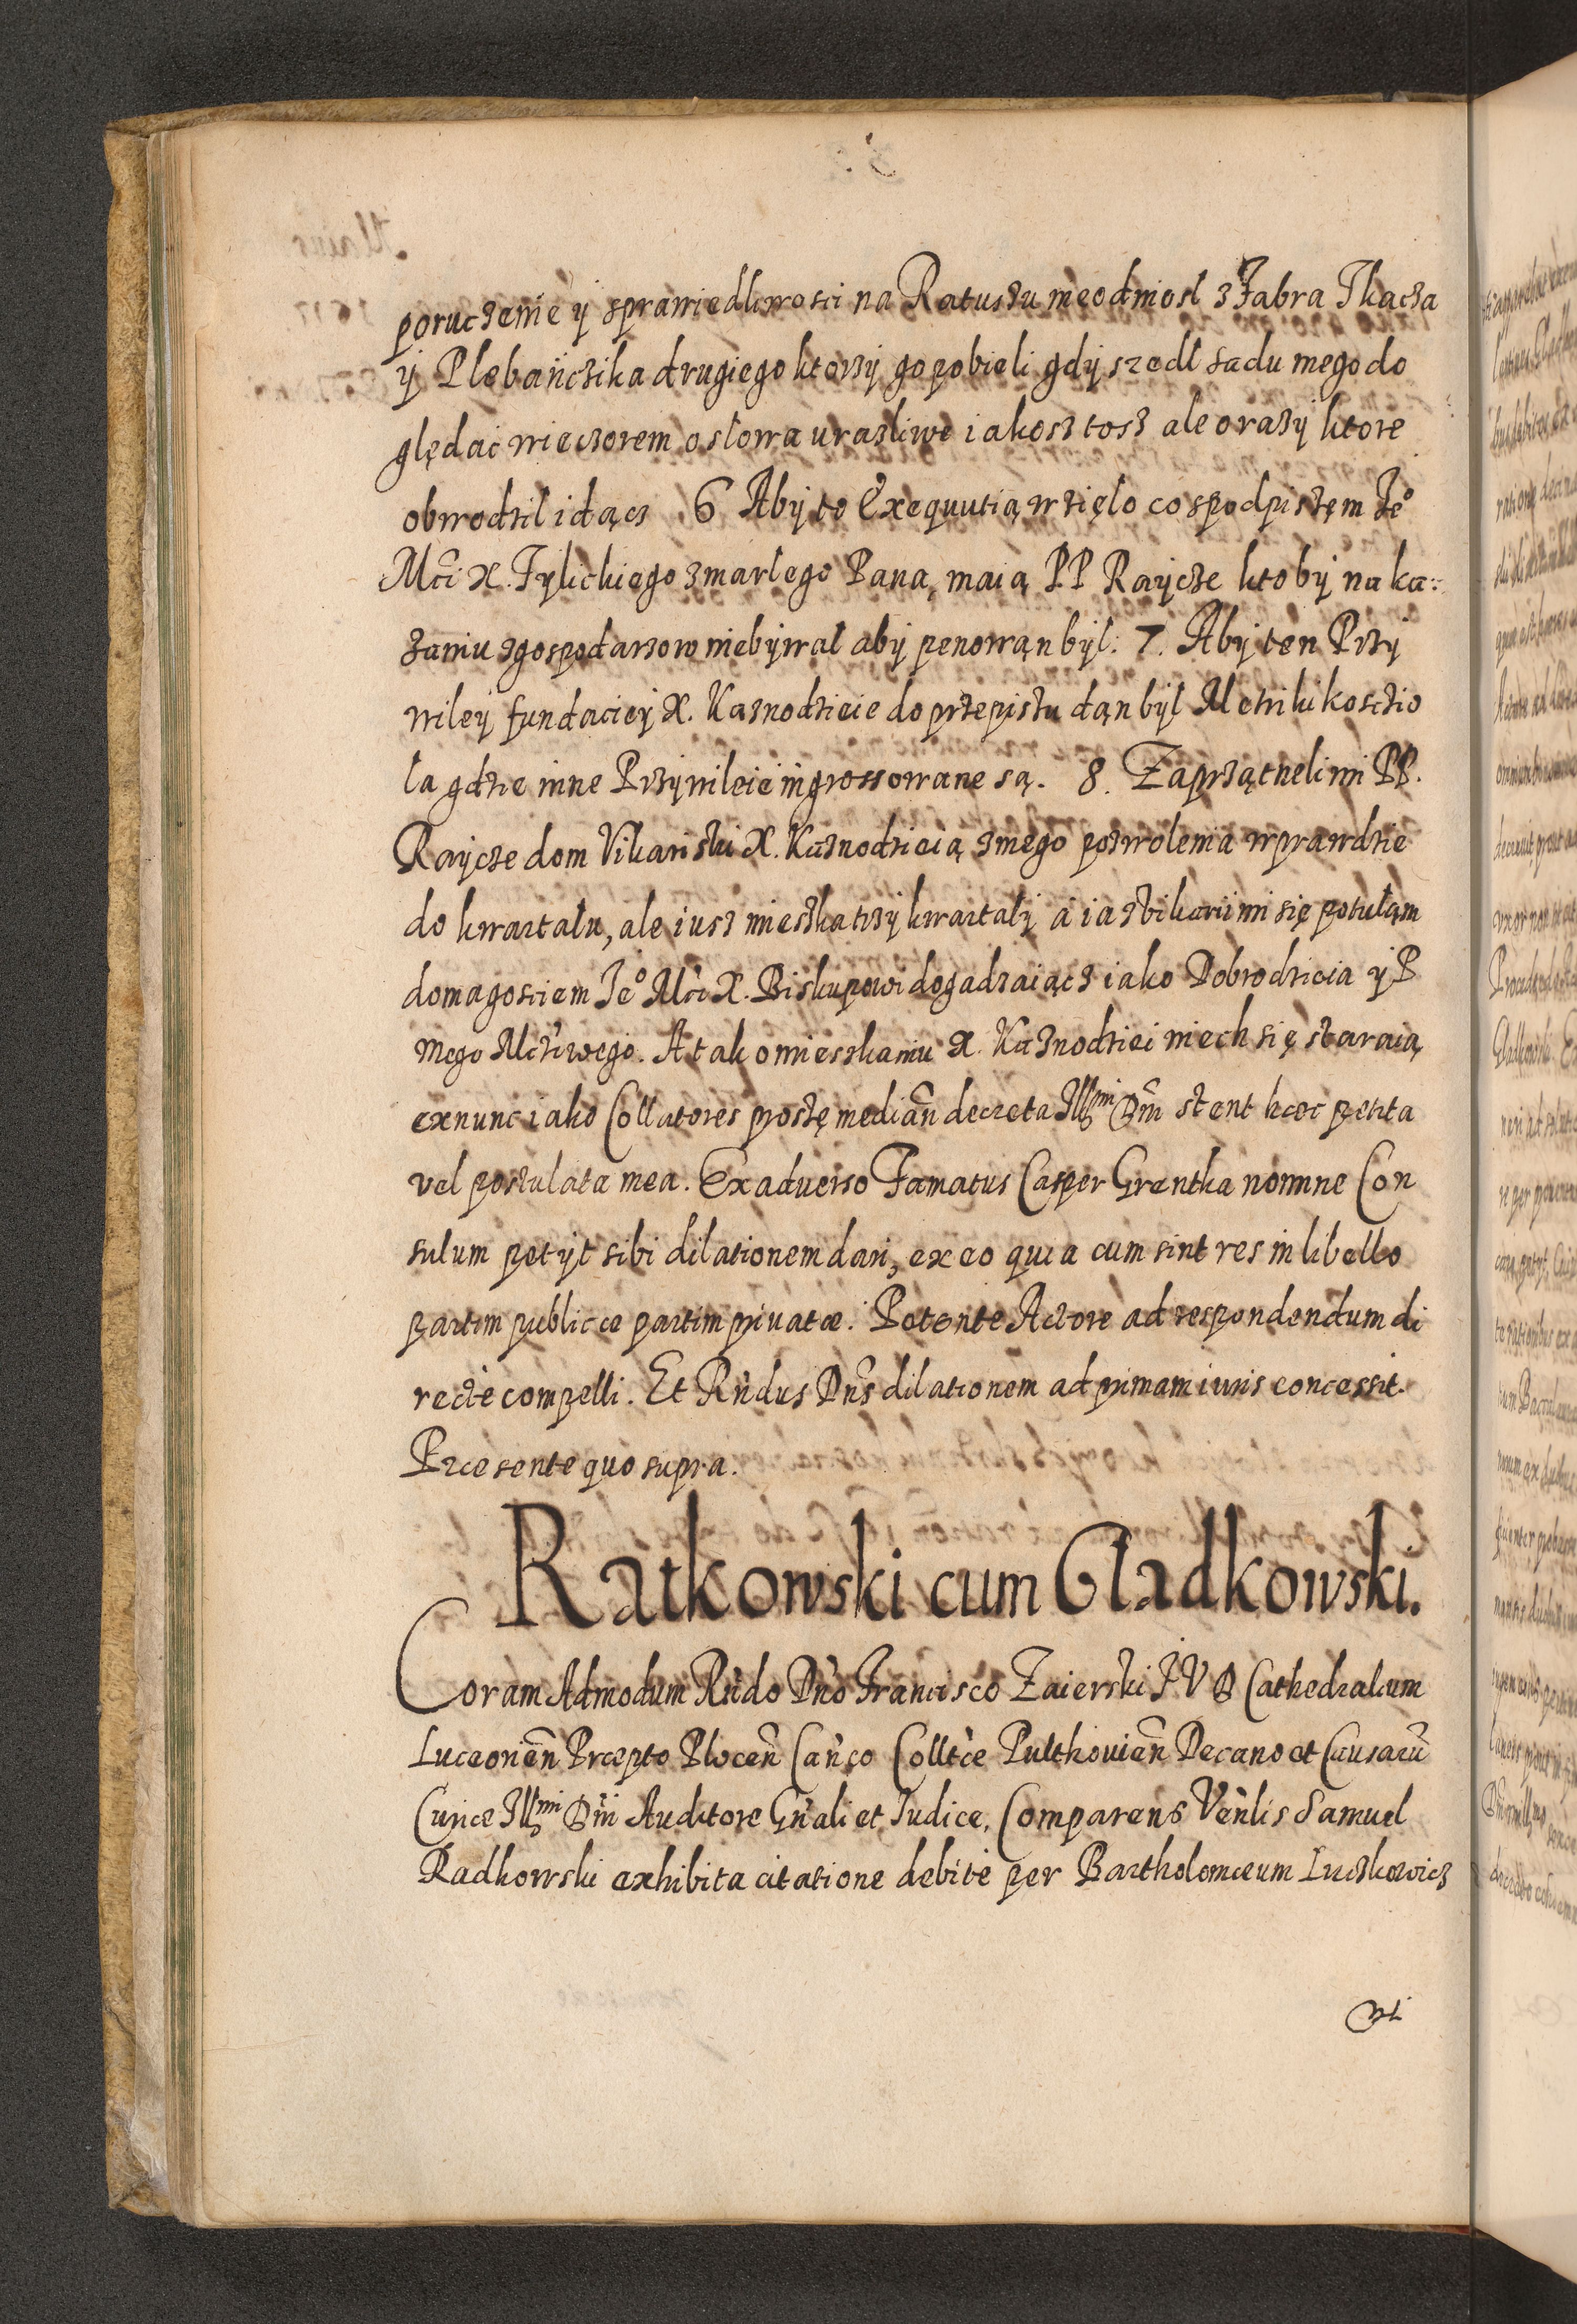 poruczenie ÿ sprawiedliwosci na Ratuszu nieodniosl z Fabra Tkacza
ÿ Plebańczika drugiego ktorzÿ go pobieli gdÿ szedl sadu mego do
ględać wieczorem o slowa urazliwe iakosz tosz ale o razÿ ktore
obwodzil idącz 6 Abÿ to Exequutią wzięlo co spodpiszęm Je͠o
Mći X. Tylickiego zmarlego Pana, maią PP Raycze ktobÿ na ka:
zaniu zgospodarzow niebÿwal abÿ penowąn bÿl: 7. Abÿ ten Przÿ
wileÿ fundacieÿ X. Kaznodzieie do przepiszu dąn bÿl Metriki koscio
la gdzie inne Przÿwileie ingrossowane są. 8. Zaprzątneli mi PP.
Raycze dom Vikariski X. Kaznodzieią zmego pozwolenia wprawdzie
do kwartalu, ale iusz mieszka trzÿ kwartalÿ a ia zvikariimi się potuląm
domagosciem Jeº Mći X. Biskupowi dogadzaiącz iako Dobrodzieia ÿ P
mego Mćiwego. A tak o mieszkaniu X. Kaznodziei niech się staraią
ex nunc iako Collatores proszę mediañ decreta Illmi Dñi stent hæc petita
vel postulata mea. Ex adverso Famatus Casper Grentka nomine Con
sulum petÿt sibi dilationem dari, ex eo quia cum sint res in libello
partim publicæ partim privatæ. Petente Actore ad respondendum di
recte compelli. Et Rñdus Dñs dilationem ad primam iuris concessit.
Præsente quo supra.
Ratkowski cum Gladkowski.
Coram Admodum Rñdo Dño Francisco Zaierski J V D Cathedralium
Luceoneñ Præpto Ploceñ Cañco Collťæ Pulthovieñ Decano et Causarũ
Curiæ Illmi Dñi Auditore Gñali et Judice, Comparens Veñlis Samuel
Radkowski exhibita citatione debite per Bartholomæum Luczkowicz